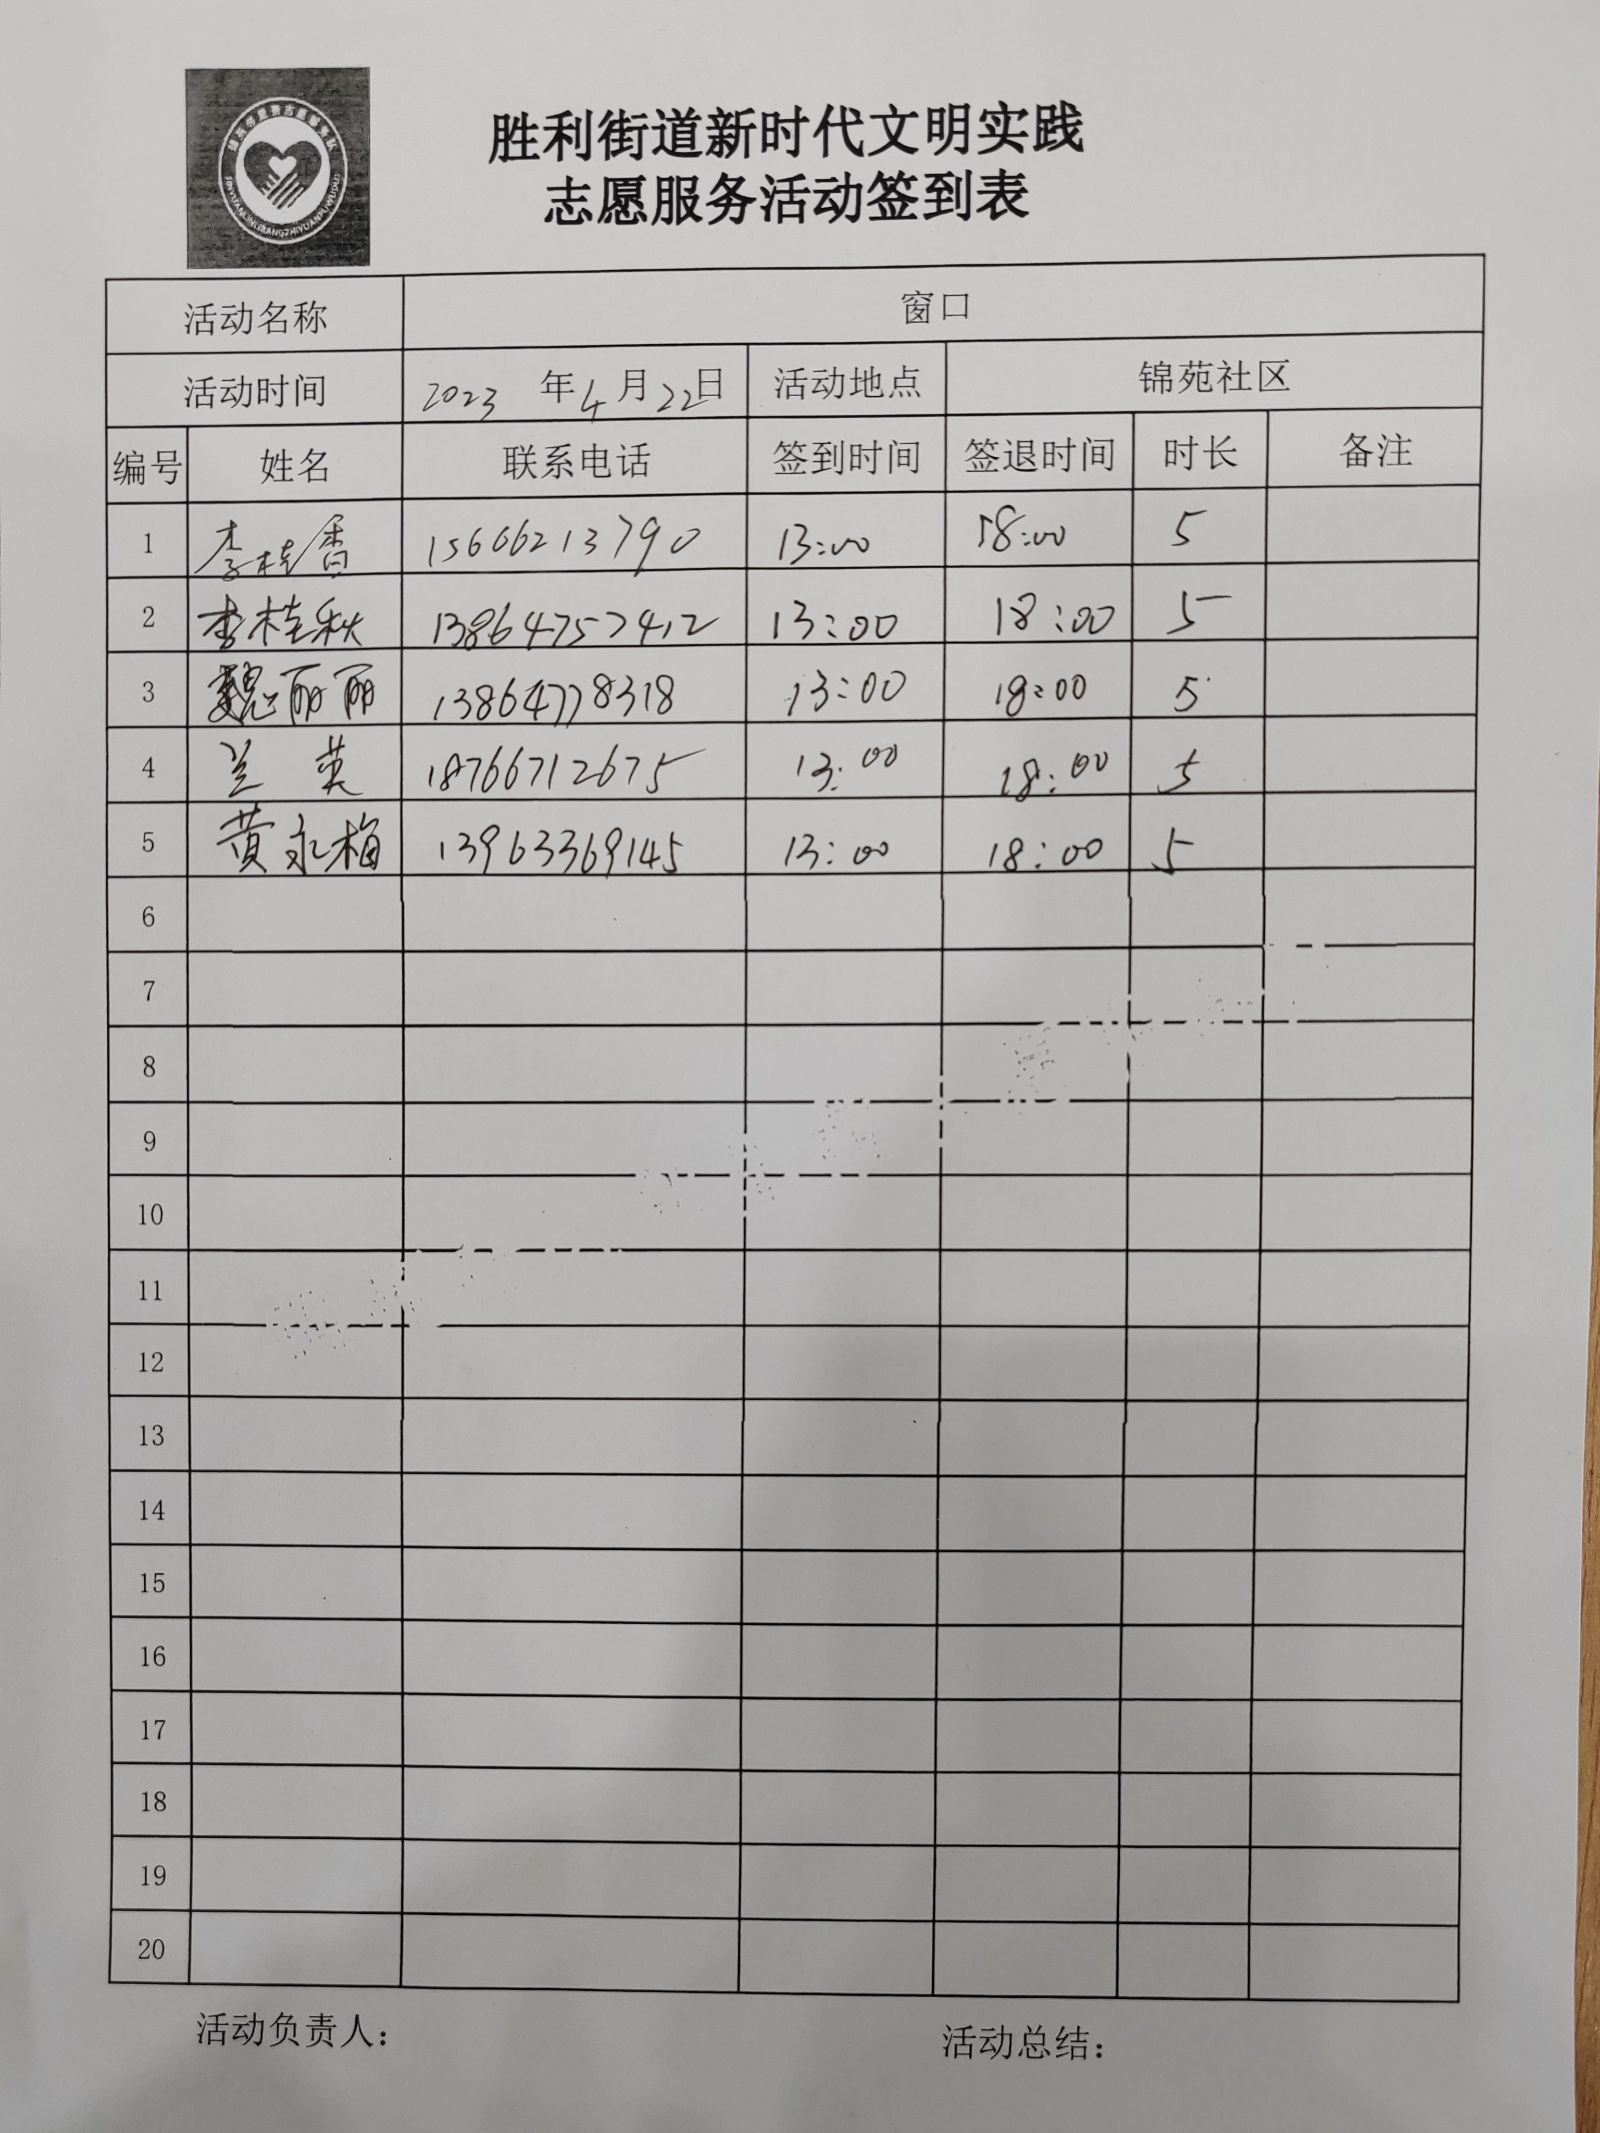 胜利街道新时代文明实践
志愿服务活动签到表
活动名称 窗口
活动时间 2023 年 4 月 22 日 活动地点 锦苑社区
编号 姓名 联系电话 签到时间 签退时间 时长 备注
1 李桂香 15666213790 13:00 18:00 5
2 李桂秋 13864757412 13:00 18:00 5
3 魏丽丽 13864778318 13:00 18:00 5
4 兰英 18766712675 13:00 18:00 5
5 黄永梅 13963369145 13:00 18:00 5
6
7
8
9
10
11
12
13
14
15
16
17
18
19
20
活动负责人： 活动总结：